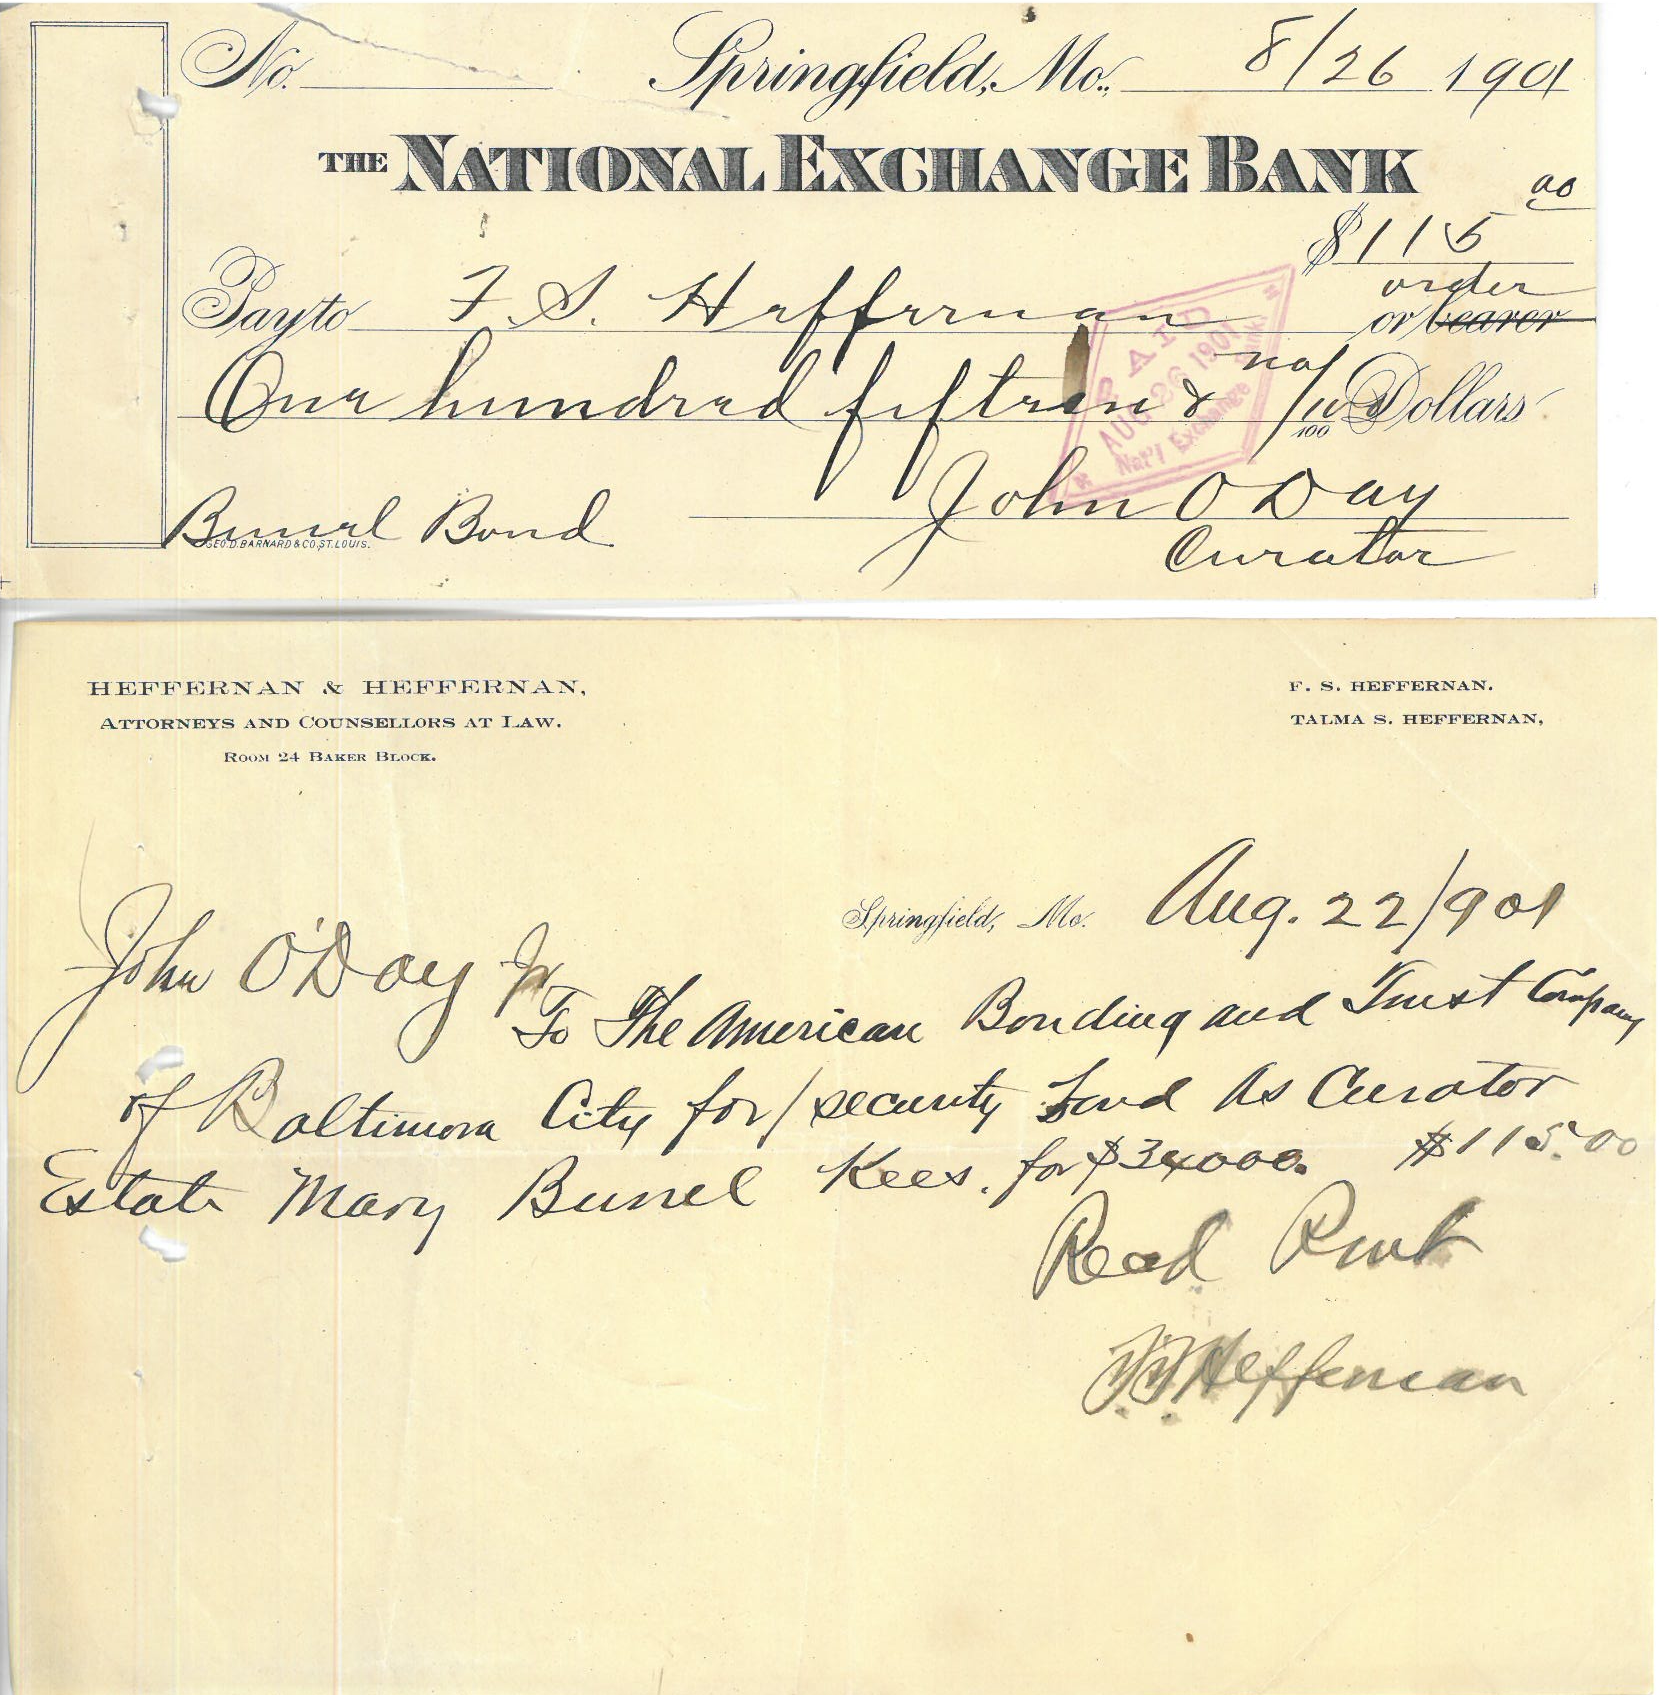 No. Springfield, Mo., 8/26 1901
THE NATIONAL EXCHANGE BANK
$115 00
Pay to F. S. Heffernan or bearer order
One hundred fifteen & no/100 Dollars
PAID
AUG 26 1901
Nat'l Exchange Bank
John O Day
Curator
Burrel Bond
GEO. D. BARNARD & CO. ST. LOUIS.
HEFFERNAN & HEFFERNAN,
ATTORNEYS AND COUNSELLORS AT LAW.
ROOM 24 BAKER BLOCK.
F. S. HEFFERNAN.
TALMA S. HEFFERNAN,
Springfield, Mo. Aug. 22/901
John O'Day Jr
To The American Bonding and Trust Company
of Baltimore City for security as Curator
Estate Mary Burrel Kees. for $34000. $115.00
Recd
Heffernan